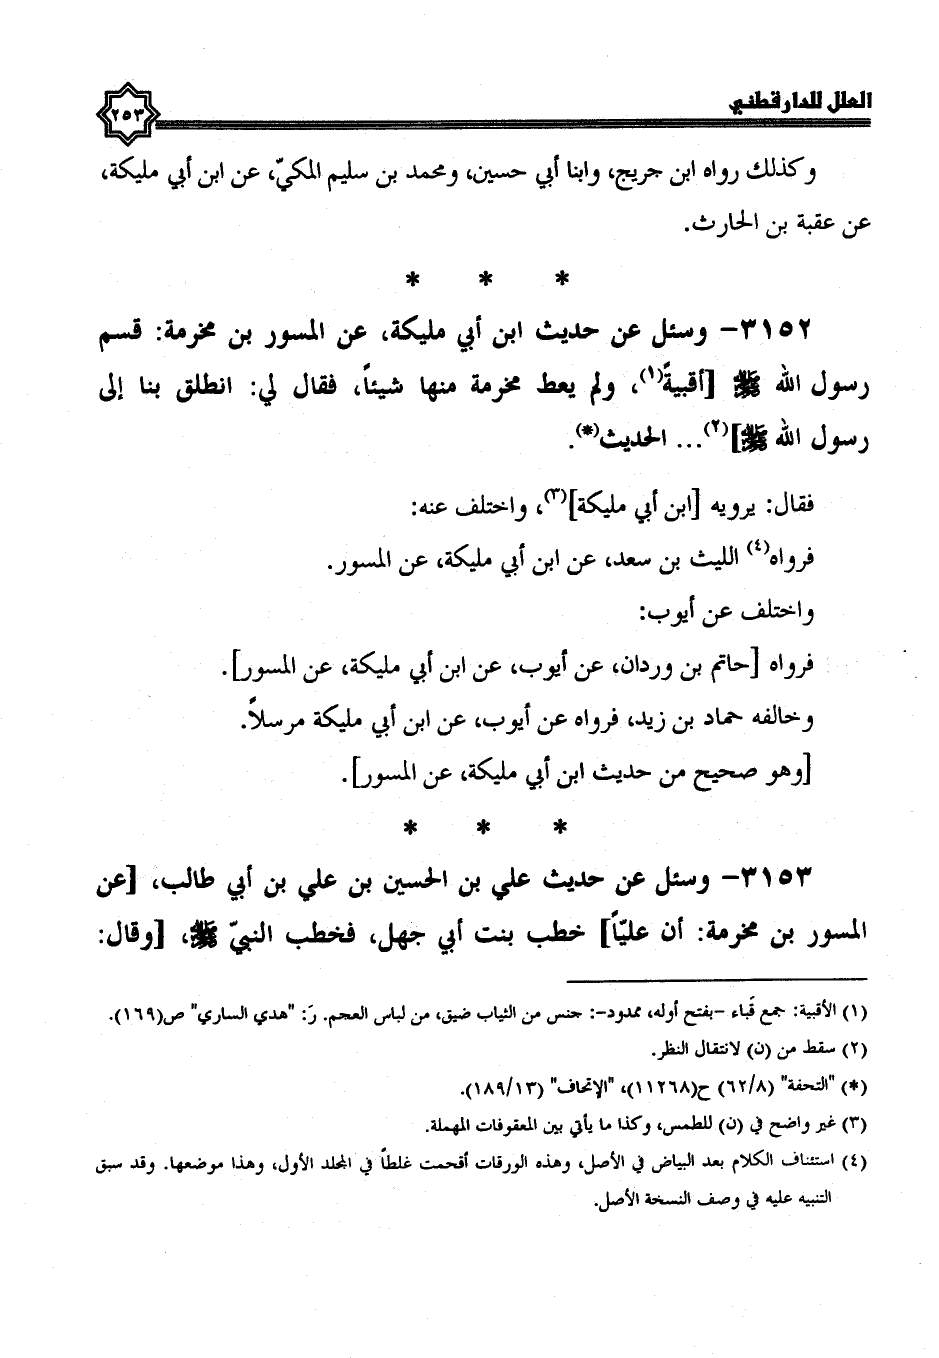 العلل للدارقطني
٢٥٣
وكذلك رواه ابن جريج، وابنا أبي حسين، ومحمد بن سليم المكيّ، عن ابن أبي مليكة،
عن عقبة بن الحارث.
* * *
٣١٥٢- وسئل عن حديث ابن أبي مليكة، عن المسور بن مخرمة: قسم
رسول الله ﷺ [أقبيةً(١)، ولم يعط مخرمة منها شيئاً، فقال لي: انطلق بنا إلى
رسول الله ﷺ](٢)... الحديث(*).
فقال: يرويه [ابن أبي مليكة](٣)، واختلف عنه:
فرواه(٤) الليث بن سعد، عن ابن أبي مليكة، عن المسور.
واختلف عن أيوب:
فرواه [حاتم بن وردان، عن أيوب، عن ابن أبي مليكة، عن المسور].
وخالفه حماد بن زيد، فرواه عن أيوب، عن ابن أبي مليكة مرسلاً.
[وهو صحيح من حديث ابن أبي مليكة، عن المسور].
* * *
٣١٥٣- وسئل عن حديث علي بن الحسين بن علي بن أبي طالب، [عن
المسور بن مخرمة: أن عليّاً] خطب بنت أبي جهل، فخطب النبيّ ﷺ، [وقال:
(١) الأقبية: جمع قَباء -بفتح أوله، ممدود-: جنس من الثياب ضيق، من لباس العجم. رَ: "هدي الساري" ص(١٦٩).
(٢) سقط من (ن) لانتقال النظر.
(*) "التحفة" (٦٢/٨) ح(١١٢٦٨)، "الإتحاف" (١٨٩/١٣).
(٣) غير واضح في (ن) للطمس، وكذا ما يأتي بين المعقوفات المهملة.
(٤) استئناف الكلام بعد البياض في الأصل، وهذه الورقات أقحمت غلطاً في المجلد الأول، وهذا موضعها. وقد سبق
التنبيه عليه في وصف النسخة الأصل.